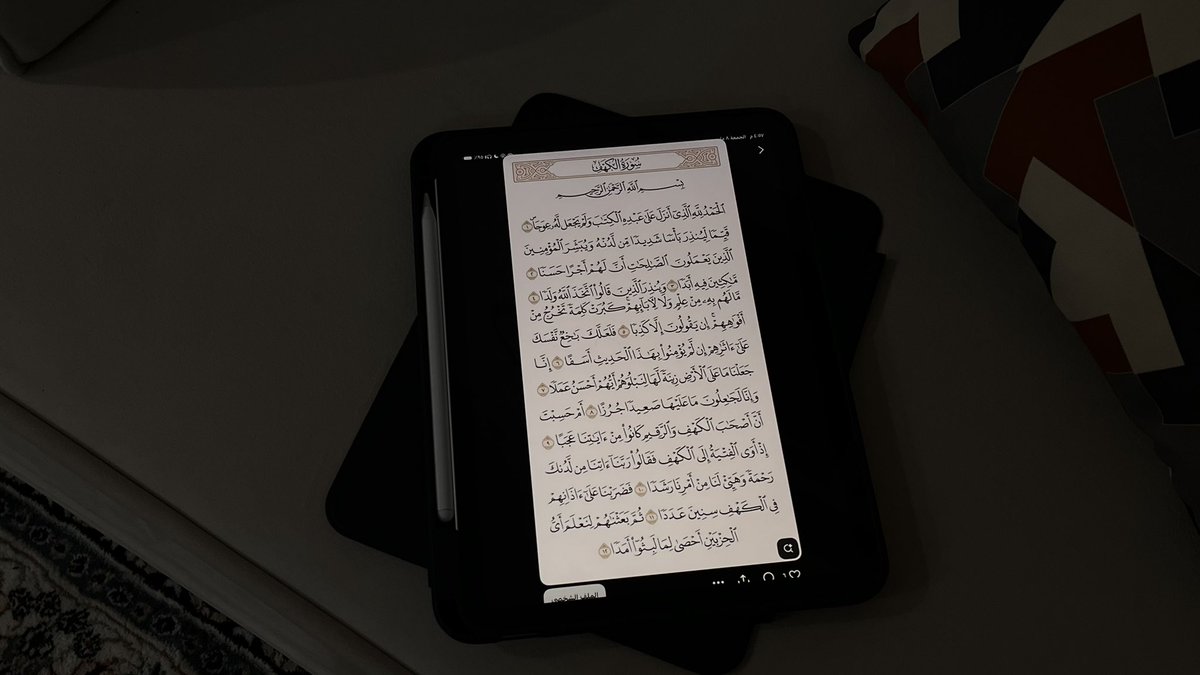 ٤:٥٧ م الجمعة ٨
سُورَةُ الْكَهْفِ
بِسْمِ اللَّهِ الرَّحْمَٰنِ الرَّحِيمِ
الْحَمْدُ لِلَّهِ الَّذِي أَنزَلَ عَلَىٰ عَبْدِهِ الْكِتَابَ وَلَمْ يَجْعَل لَّهُ عِوَجًا ۜ ١
قَيِّمًا لِّيُنذِرَ بَأْسًا شَدِيدًا مِّن لَّدُنْهُ وَيُبَشِّرَ الْمُؤْمِنِينَ
الَّذِينَ يَعْمَلُونَ الصَّالِحَاتِ أَنَّ لَهُمْ أَجْرًا حَسَنًا ٢
مَّاكِثِينَ فِيهِ أَبَدًا ٣ وَيُنذِرَ الَّذِينَ قَالُوا اتَّخَذَ اللَّهُ وَلَدًا ٤
مَّا لَهُم بِهِ مِنْ عِلْمٍ وَلَا لِآبَائِهِمْ ۚ كَبُرَتْ كَلِمَةً تَخْرُجُ مِنْ
أَفْوَاهِهِمْ ۚ إِن يَقُولُونَ إِلَّا كَذِبًا ٥ فَلَعَلَّكَ بَاخِعٌ نَّفْسَكَ
عَلَىٰ آثَارِهِمْ إِن لَّمْ يُؤْمِنُوا بِهَٰذَا الْحَدِيثِ أَسَفًا ٦ إِنَّا
جَعَلْنَا مَا عَلَى الْأَرْضِ زِينَةً لَّهَا لِنَبْلُوَهُمْ أَيُّهُمْ أَحْسَنُ عَمَلًا ٧
وَإِنَّا لَجَاعِلُونَ مَا عَلَيْهَا صَعِيدًا جُرُزًا ٨ أَمْ حَسِبْتَ
أَنَّ أَصْحَابَ الْكَهْفِ وَالرَّقِيمِ كَانُوا مِنْ آيَاتِنَا عَجَبًا ٩
إِذْ أَوَى الْفِتْيَةُ إِلَى الْكَهْفِ فَقَالُوا رَبَّنَا آتِنَا مِن لَّدُنكَ
رَحْمَةً وَهَيِّئْ لَنَا مِنْ أَمْرِنَا رَشَدًا ١٠ فَضَرَبْنَا عَلَىٰ آذَانِهِمْ
فِي الْكَهْفِ سِنِينَ عَدَدًا ١١ ثُمَّ بَعَثْنَاهُمْ لِنَعْلَمَ أَيُّ
الْحِزْبَيْنِ أَحْصَىٰ لِمَا لَبِثُوا أَمَدًا ١٢
١
الملف الشخصي